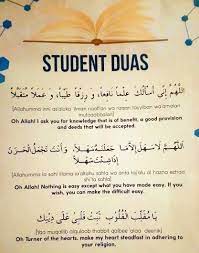 STUDENT DUAS
اللَّهُمَّ إِنِّي أَسْأَلُكَ عِلْمًا نَافِعًا، وَ رِزْقًا طَيِّبًا، وَ عَمَلًا مُتَقَبَّلًا
(Allahumma inni as'aluka ilman naafi'an wa rizqan tayyiban wa amalan
mutaqabbalan)
Oh Allah! I ask you for knowledge that is of benefit, a good provision
and deeds that will be accepted.
اَللَّهُمَّ لَا سَهْلَ إِلَّا مَا جَعَلْتَهُ سَهْلًا، وَأَنْتَ تَجْعَلُ الْحَزْنَ
إِذَا شِئْتَ سَهْلًا
Oh Allah! Nothing is easy except what you have made easy. If you
wish, you can make the difficult easy.
يَا مُقَلِّبَ الْقُلُوْبِ ثَبِّتْ قَلْبِيْ عَلَى دِيْنِكَ
(Yaa muqallib alquloob thabbit qalbee 'alaa deenik)
Oh Turner of the hearts, make my heart steadfast in adhering to
your religion.